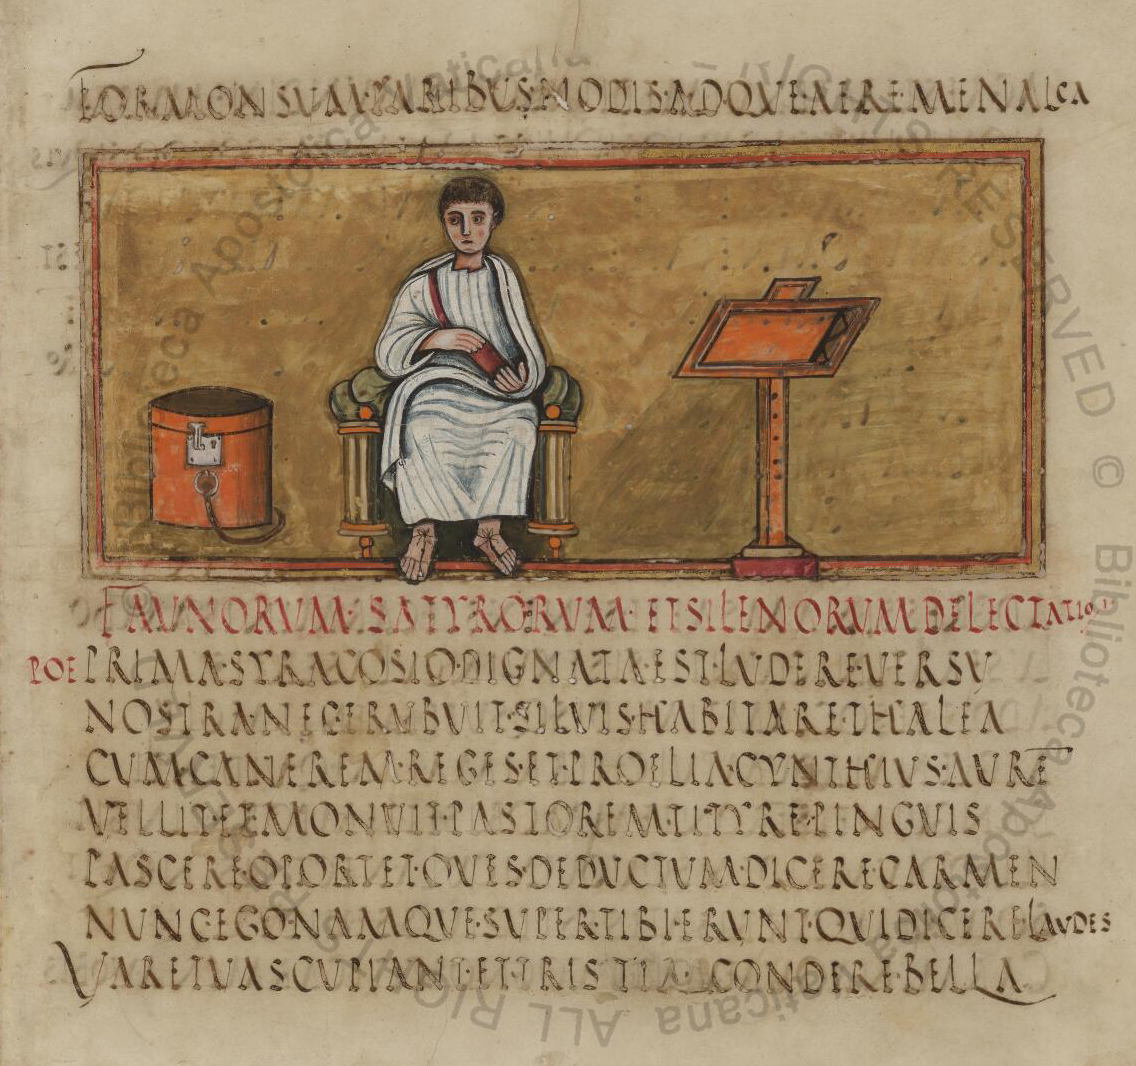 FORMONSVM·PARIBVS·NODIS·ADQVE·AERE·MENALCA
FAVNORVM·SATYRORVM·ET SILENORVM DELECTATIO
POE PRIMA·SYRACOSIO·DIGNATA·EST·LVDERE·VERSV
NOSTRA·NEC·ERVBVIT·SILVIS·HABITARE·THALEA
CVM·CANEREM·REGES·ET·PROELIA·CYNTHIVS·AVRE
VELLIT·ET·MONVIT·PASTOREM·TITYRE·PINGVIS
PASCERE·OPORTET·OVES·DEDVCTVM·DICERE·CARMEN
NVNC·EGO·NAMQVE·SVPER·TIBI·ERVNT·QVI·DICERE·LAVDES
VARE·TVAS·CVPIANT·ET·TRISTIA·CONDERE·BELLA
© Biblioteca Apostolica Vaticana ALL RIGHTS RESERVED